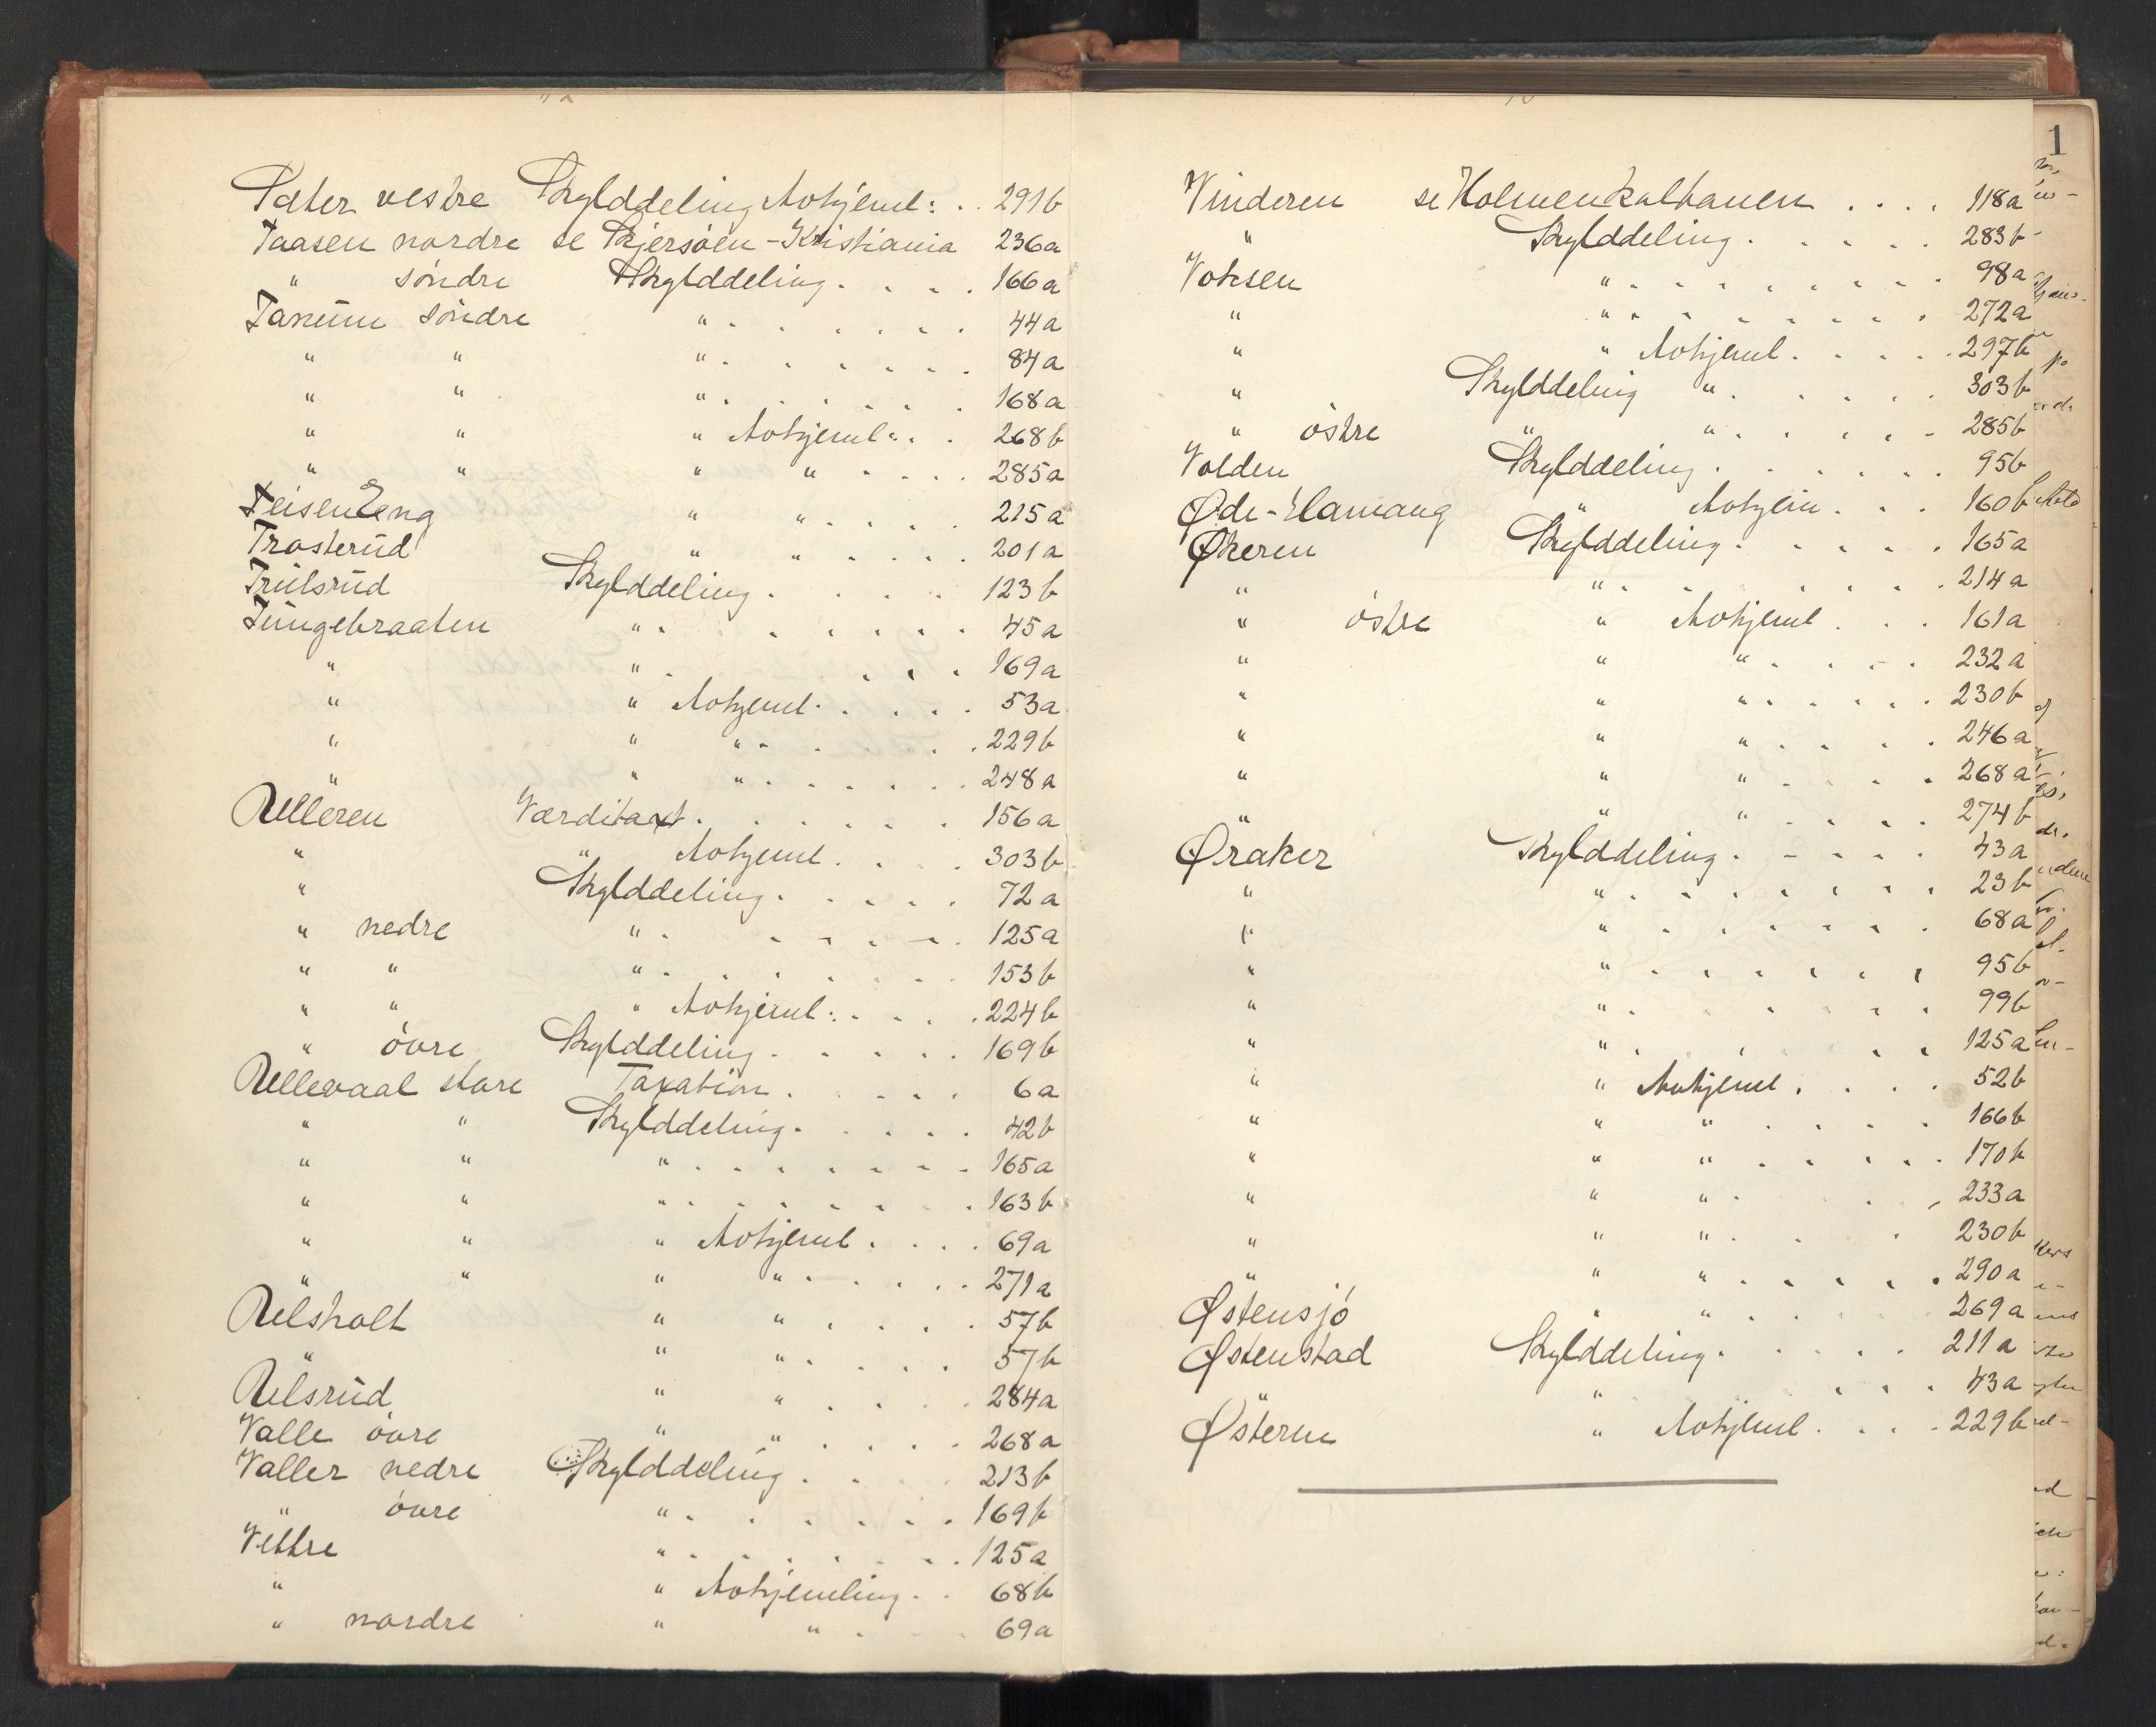 Sæter vestre Skylddeling Avhjeml: . . 291b
Taasen nordre se Skjersöen-Kristiania 236a
" söndre Skylddeling . . . . 166a
Tanum söndre " . . . . . . . 44a
" " " . . . . . . . 84a
" " " . . . . . . . 168a
" " " Avhjeml: . . 268b
" " " " . . . . 285a
Teisen Eng " " . . . . . 215a
Trosterud " " . . . . . 201a
Trulsrud Skylddeling . . . . . 123b
Tungebraaten " . . . . . . . 45a
" " . . . . . 169a
" " Avhjeml . . . . . 53a
" " " . . . . . 229b
" " " . . . . . . 248a
Ulleren Værditaxt . . . . . . . 156a
" " Avhjeml . . . . 303b
" Skylddeling . . . . . 72a
" nedre " . . . . . . 125a
" " " . . . . . . . 153b
" " " Avhjeml: . . . . 224b
" övre Skylddeling . . . . . 169b
Ullevaal store Taxation . . . . . 6a
" " Skylddeling . . . . . 42b
" " " . . . . . . . 165a
" " " . . . . . . . 163b
" " " Avhjeml . . . . 69a
" " " " . . . . . 271a
Ulsholt " " . . . . . 57b
" " " . . . . . 57b
Ulsrud " " . . . . 284a
Valle övre " " . . . . . 268a
Valler nedre Skylddeling . . . . 213b
" övre " . . . . . . . 169b
Vettre " . . . . . . . 125a
" " Avhjemling . . 68b
" nordre " " . . . 69a
Vinderen se Holmenkolbanen . . . . 118a
" Skylddeling . . . . . 283b
Voksen " . . . . . . . . 98a
" " . . . . . . . . 272a
" " Avhjeml . . . . . 297b
" Skylddeling " . . . . . . 303b
" östre " " . . . . . . 285b
Volden Skylddeling . . . . . . 95b
Øde-Hamang " Avhjem . . . 160b
Økeren Skylddeling . . . . . 165a
" " . . . . . . . . 214a
" östre " Avhjeml . . . 161a
" " " . . . . . 232a
" " " . . . . . . 230b
" " " . . . . . 246a
" " " . . . . . 268a
" " " . . . . . 274b
Øraker Skylddeling . . . . . 43a
" " . . . . . . . . 23b
" " . . . . . . . 68a
" " . . . . . . . . 95b
" " . . . . . . 99b
" " . . . . . . 125a
" " Avhjeml . . . . 52b
" " " . . . . . 166b
" " " . . . . . . 170b
" " " . . . . 233a
" " " . . . 230b
" " " . . . . . . 290a
Østensjö " " . . . . 269a
Østenstad Skylddeling . . . . . 211a
" " . . . . 43a
Østern " Avhjeml . . . . 229b
1